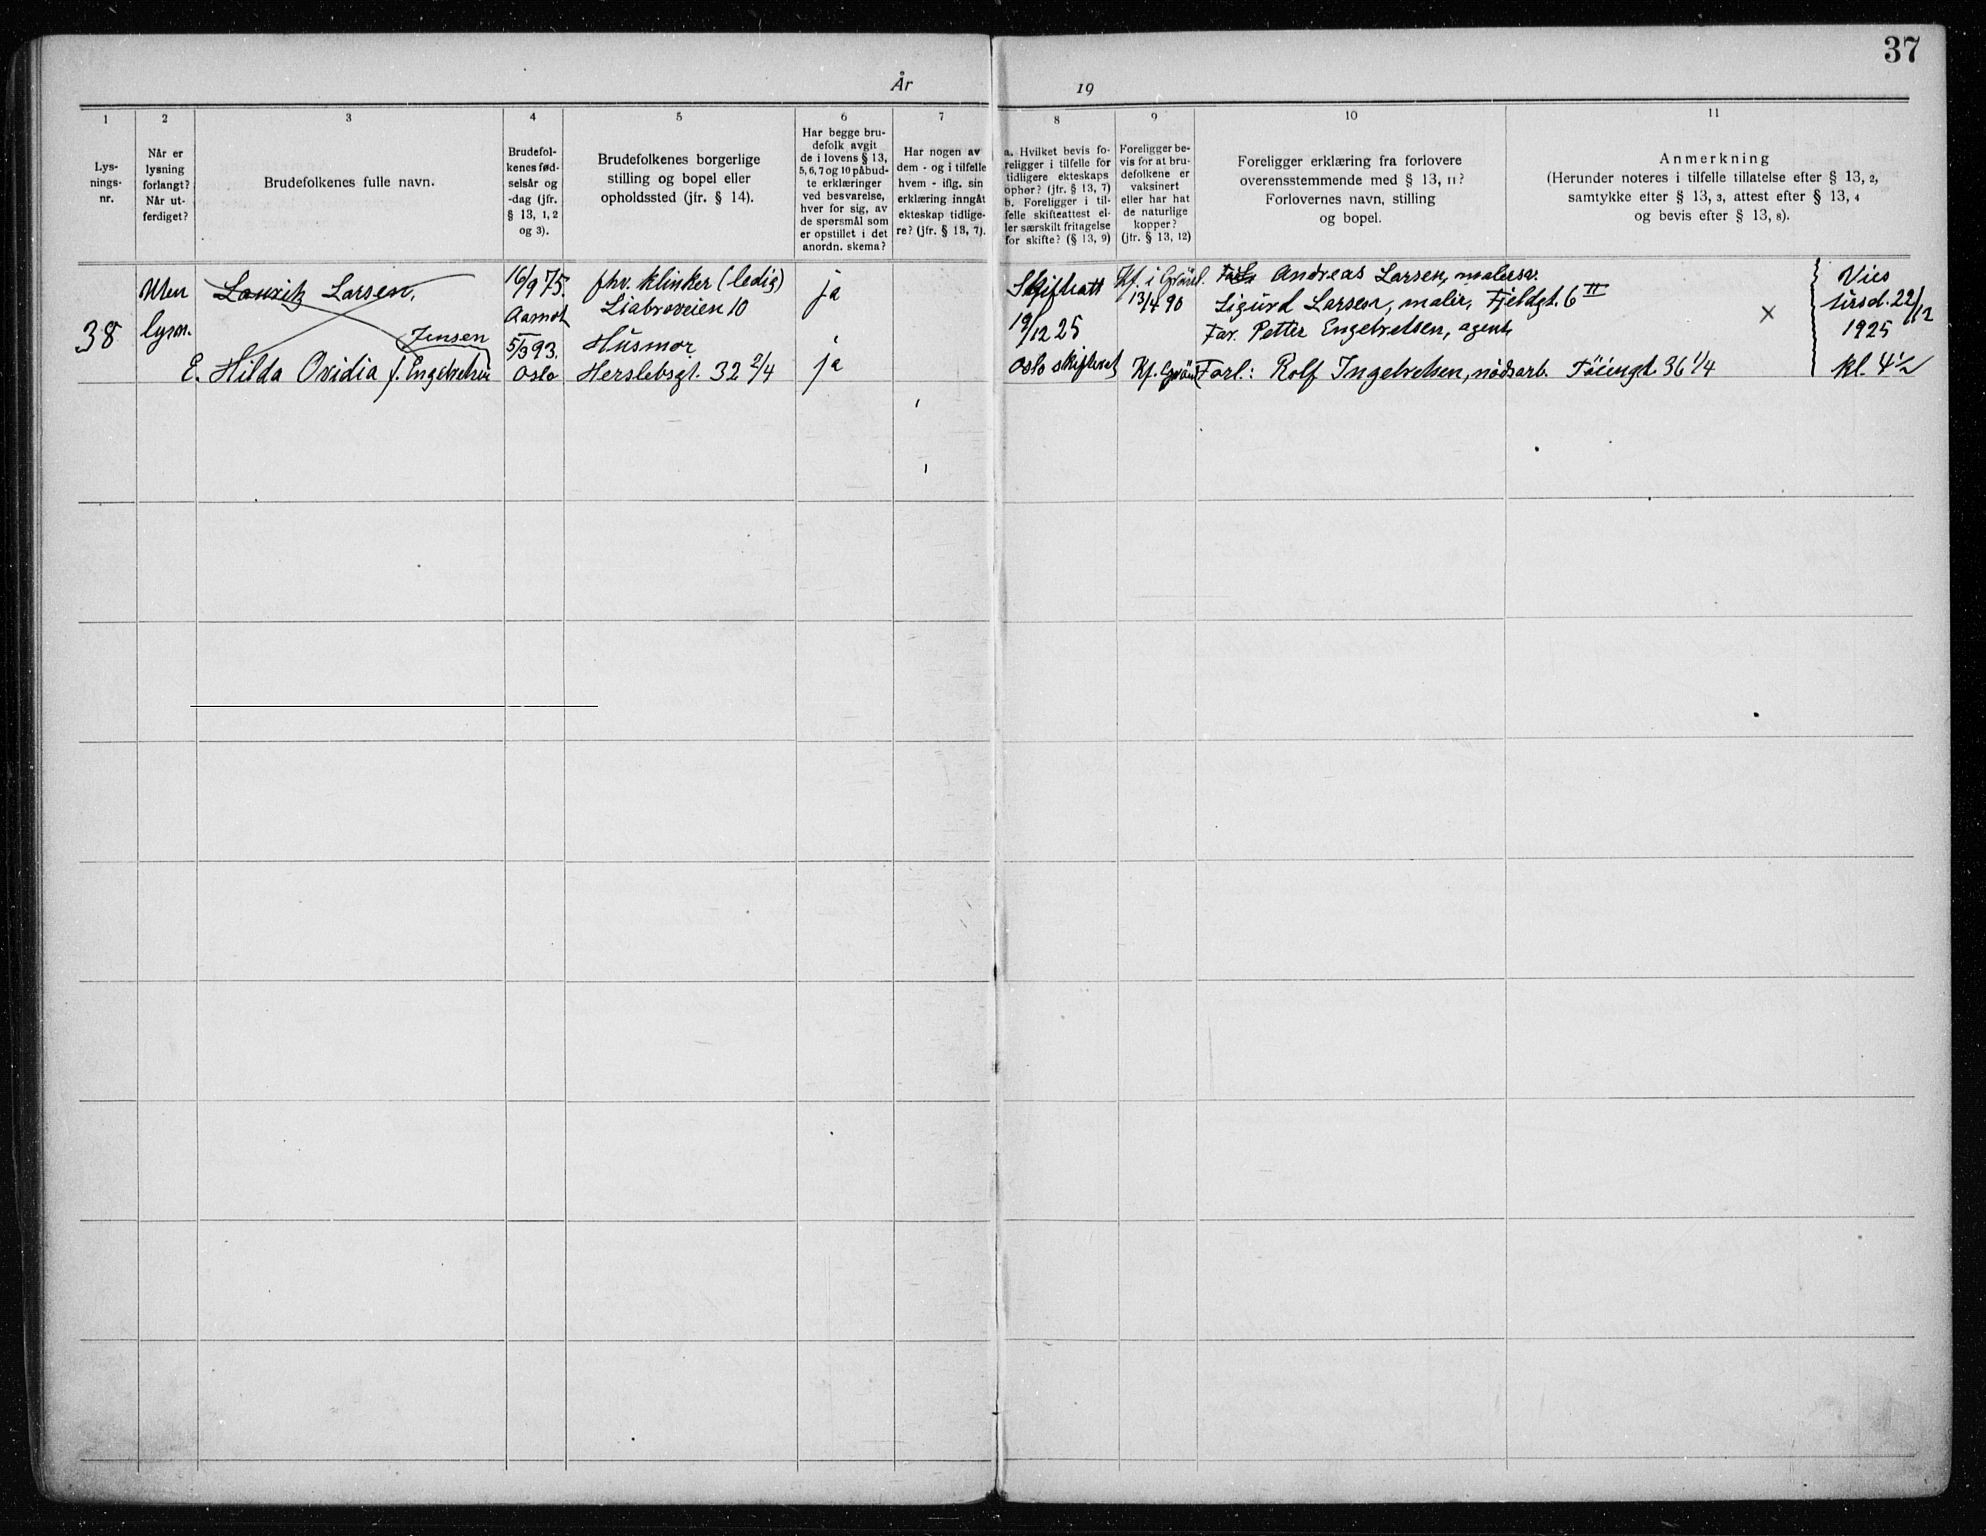 37
År
19
1
2
3
4
5
6
7
8
9
10
11
Lys-
nings-
nr.
Når er
lysning
forlangt?
Når ut-
ferdiget?
Brudefolkenes fulle navn.
Brudefol-
kenes fød-
selsår og
-dag (jfr.
§ 13, 1, 2
og 3).
Brudefolkenes borgerlige
stilling og bopel eller
opholdssted (jfr. § 14).
Har begge bru-
defolk avgit
de i lovens § 13,
5, 6, 7 og 10 påbud-
te erklæringer
ved besvarelse,
hver for sig, av
de spørsmål som
er opstillet i det
anordn. skema?
Har nogen av
dem - og i tilfelle
hvem - iflg. sin
erklæring inngåt
ekteskap tidlige-
re? (jfr. § 13, 7).
a. Hvilket bevis fo-
religger i tilfelle for
tidligere ekteskaps
ophør? (jfr. § 13, 7)
b. Foreligger i til-
felle skifteattest el-
ler særskilt fritagelse
for skifte? (§ 13, 9)
Foreligger be-
vis for at bru-
defolkene er
vaksinert
eller har hat
de naturlige
kopper?
(jfr. § 13, 12)
Foreligger erklæring fra forlovere
overensstemmende med § 13, 11?
Forlovernes navn, stilling
og bopel.
Anmerkning
(Herunder noteres i tilfelle tillatelse efter § 13, 2,
samtykke efter § 13, 3, attest efter § 13, 4
og bevis efter § 13, 8).
38
Uten
lysn.
Lauritz Larsen,
Jensen
E. Hilda Ovidia f. Engebretsen
16/9 75.
Aamot
5/3 93.
Oslo
fhv. klinker (ledig)
Liabroveien 10
Husmor
Herslebsgt. 32 2/4
ja
ja
Skifteatt
19/12 25
Oslo skifteret
Kf. i Grönl.
13/4 90
Kf. Grönl
Andreas Larsen, malersv.
Sigurd Larsen, maler, Fjeldgt. 6 II
Far. Petter Engebretsen, agent,
Forl.: Rolf Ingebretsen, nødsarb. Töiengt. 36 1/4
x
Vies
tirsd. 22/12
1925
kl. 4 1/2